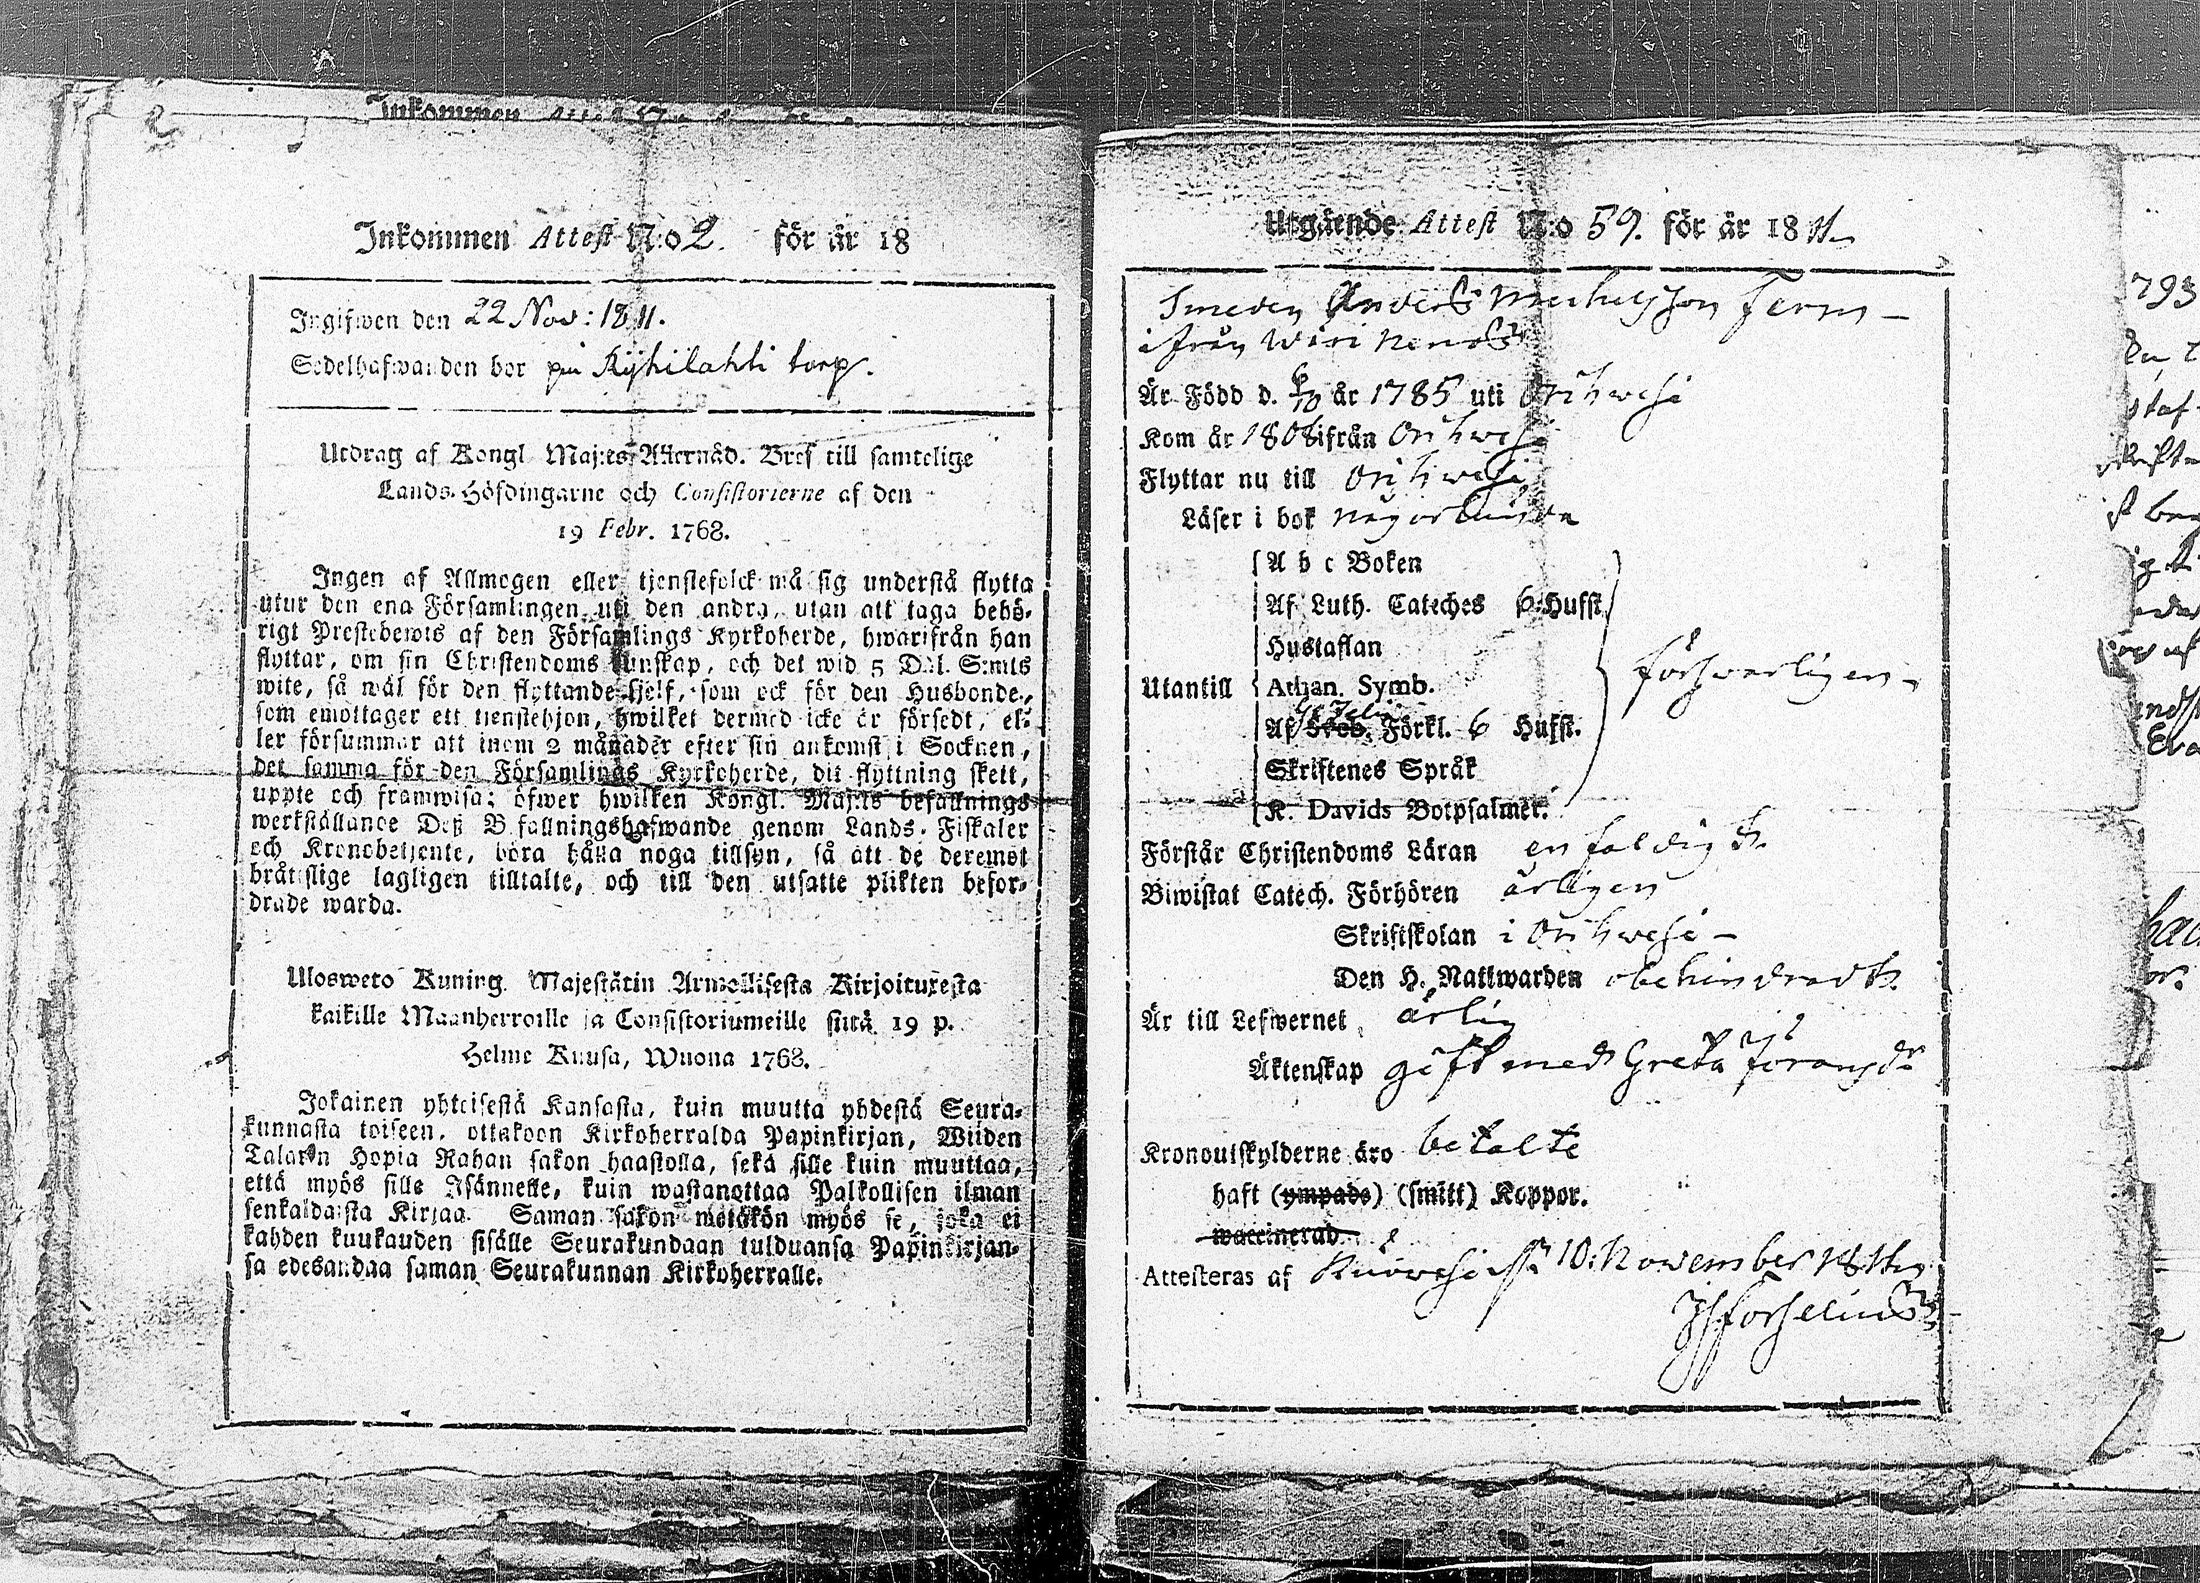 Inkommen Attest N:o 2. för år 18
Ingifwen den 22 Nov: 1811.
Sedelhafwanden bor på Kyhilahti torp.
Utdrag af Kongl Maj:ts Allernåd. Bref till samtelige
Lands-Höfdingarne och Consistorierne af den
19 Febr. 1768.
Ingen af Allmogen eller tjenstefolck må sig understå flytta
utur den ena Församlingen uti den andra, utan att taga behö-
rigt Prestebewis af den Församlings Kyrkoherde, hwarifrån han
flyttar, om sin Christendoms kunskap, och det wid 5 Dal. S:mts
wite, så wäl för den flyttande sjelf, som ock för den Husbonde,
som emottager ett tienstehjon, hwilket dermed icke är försedt, el-
ler försummar att inom 2 månader efter sin ankomst i Socknen,
det samma för den Församlings Kyrkoherde, dit flyttning skett,
uppte och framwisa; öfwer hwilken Kongl. Maj:ts befallnings
werkställande Deß Befallningshafwande genom Lands-Fiskaler
och Kronobetjente, böra hålla noga tillsyn, så att de deremot
bråtslige lagligen tilltalte, och till den utsatte plikten befor-
drade warda.
Ulosweto Kuning. Majestätin Armollisesta Kirjoituxesta
kaikille Maanherroille ja Consistoriumeille siitä 19 p.
Helme Kuusa, Wuona 1768.
Jokainen yhteisestä Kansasta, kuin muutta yhdestä Seura-
kunnasta toiseen, ottakoon Kirkoherralda Papinkirjan, Wiiden
Talarin Hopia Rahan sakon haastolla, sekä sille kuin muuttaa,
että myös sille Isännelle, kuin wastanottaa Palkollisen ilman
senkaldaista Kirjaa. Saman sakon wetäkön myös se, joka ei
kahden kuukauden sisälle Seurakundaan tulduansa Papinkirjan-
sa edesandaa saman Seurakunnan Kirkoherralle.
Utgående Attest N:o 59. för år 1811.
Smeden Anders Michelsson Ferm
ifrån
Är Född d. 6/10 år 1785 uti Orihwesi
Kom år 1808 ifrån Orihwesi
Flyttar nu till Orihwesi
Läser i bok någorlunda
A b c Boken
Af Luth. Cateches 6 Hufst.
Hustaflan
Utantill Athan. Symb. försvarligen
Af Sveb. Förkl. 6 Hufst.
Skriftenes Språk
K. Davids Botpsalmer.
Förstår Christendoms Läran enfaldigt.
Biwistat Catech. Förhören årligen
Skriftskolan i Orihwesi
Den H. Nattwarden obehindradt.
Är till Lefwernet ärlig
Äktenskap gift med Greta Jöransdr
Kronoutskylderne äro betalte
haft (ympade) (smitt) Koppor.
waccinerad
Attesteras af Ruowesi 10: November 1811
Forselius